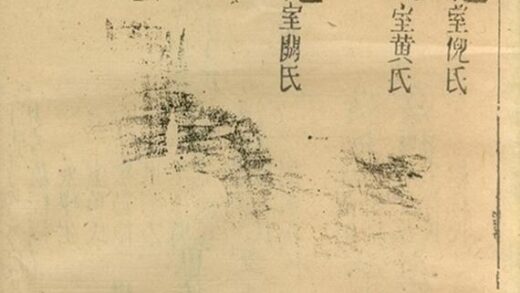 室倪氏
室黄氏
室關氏